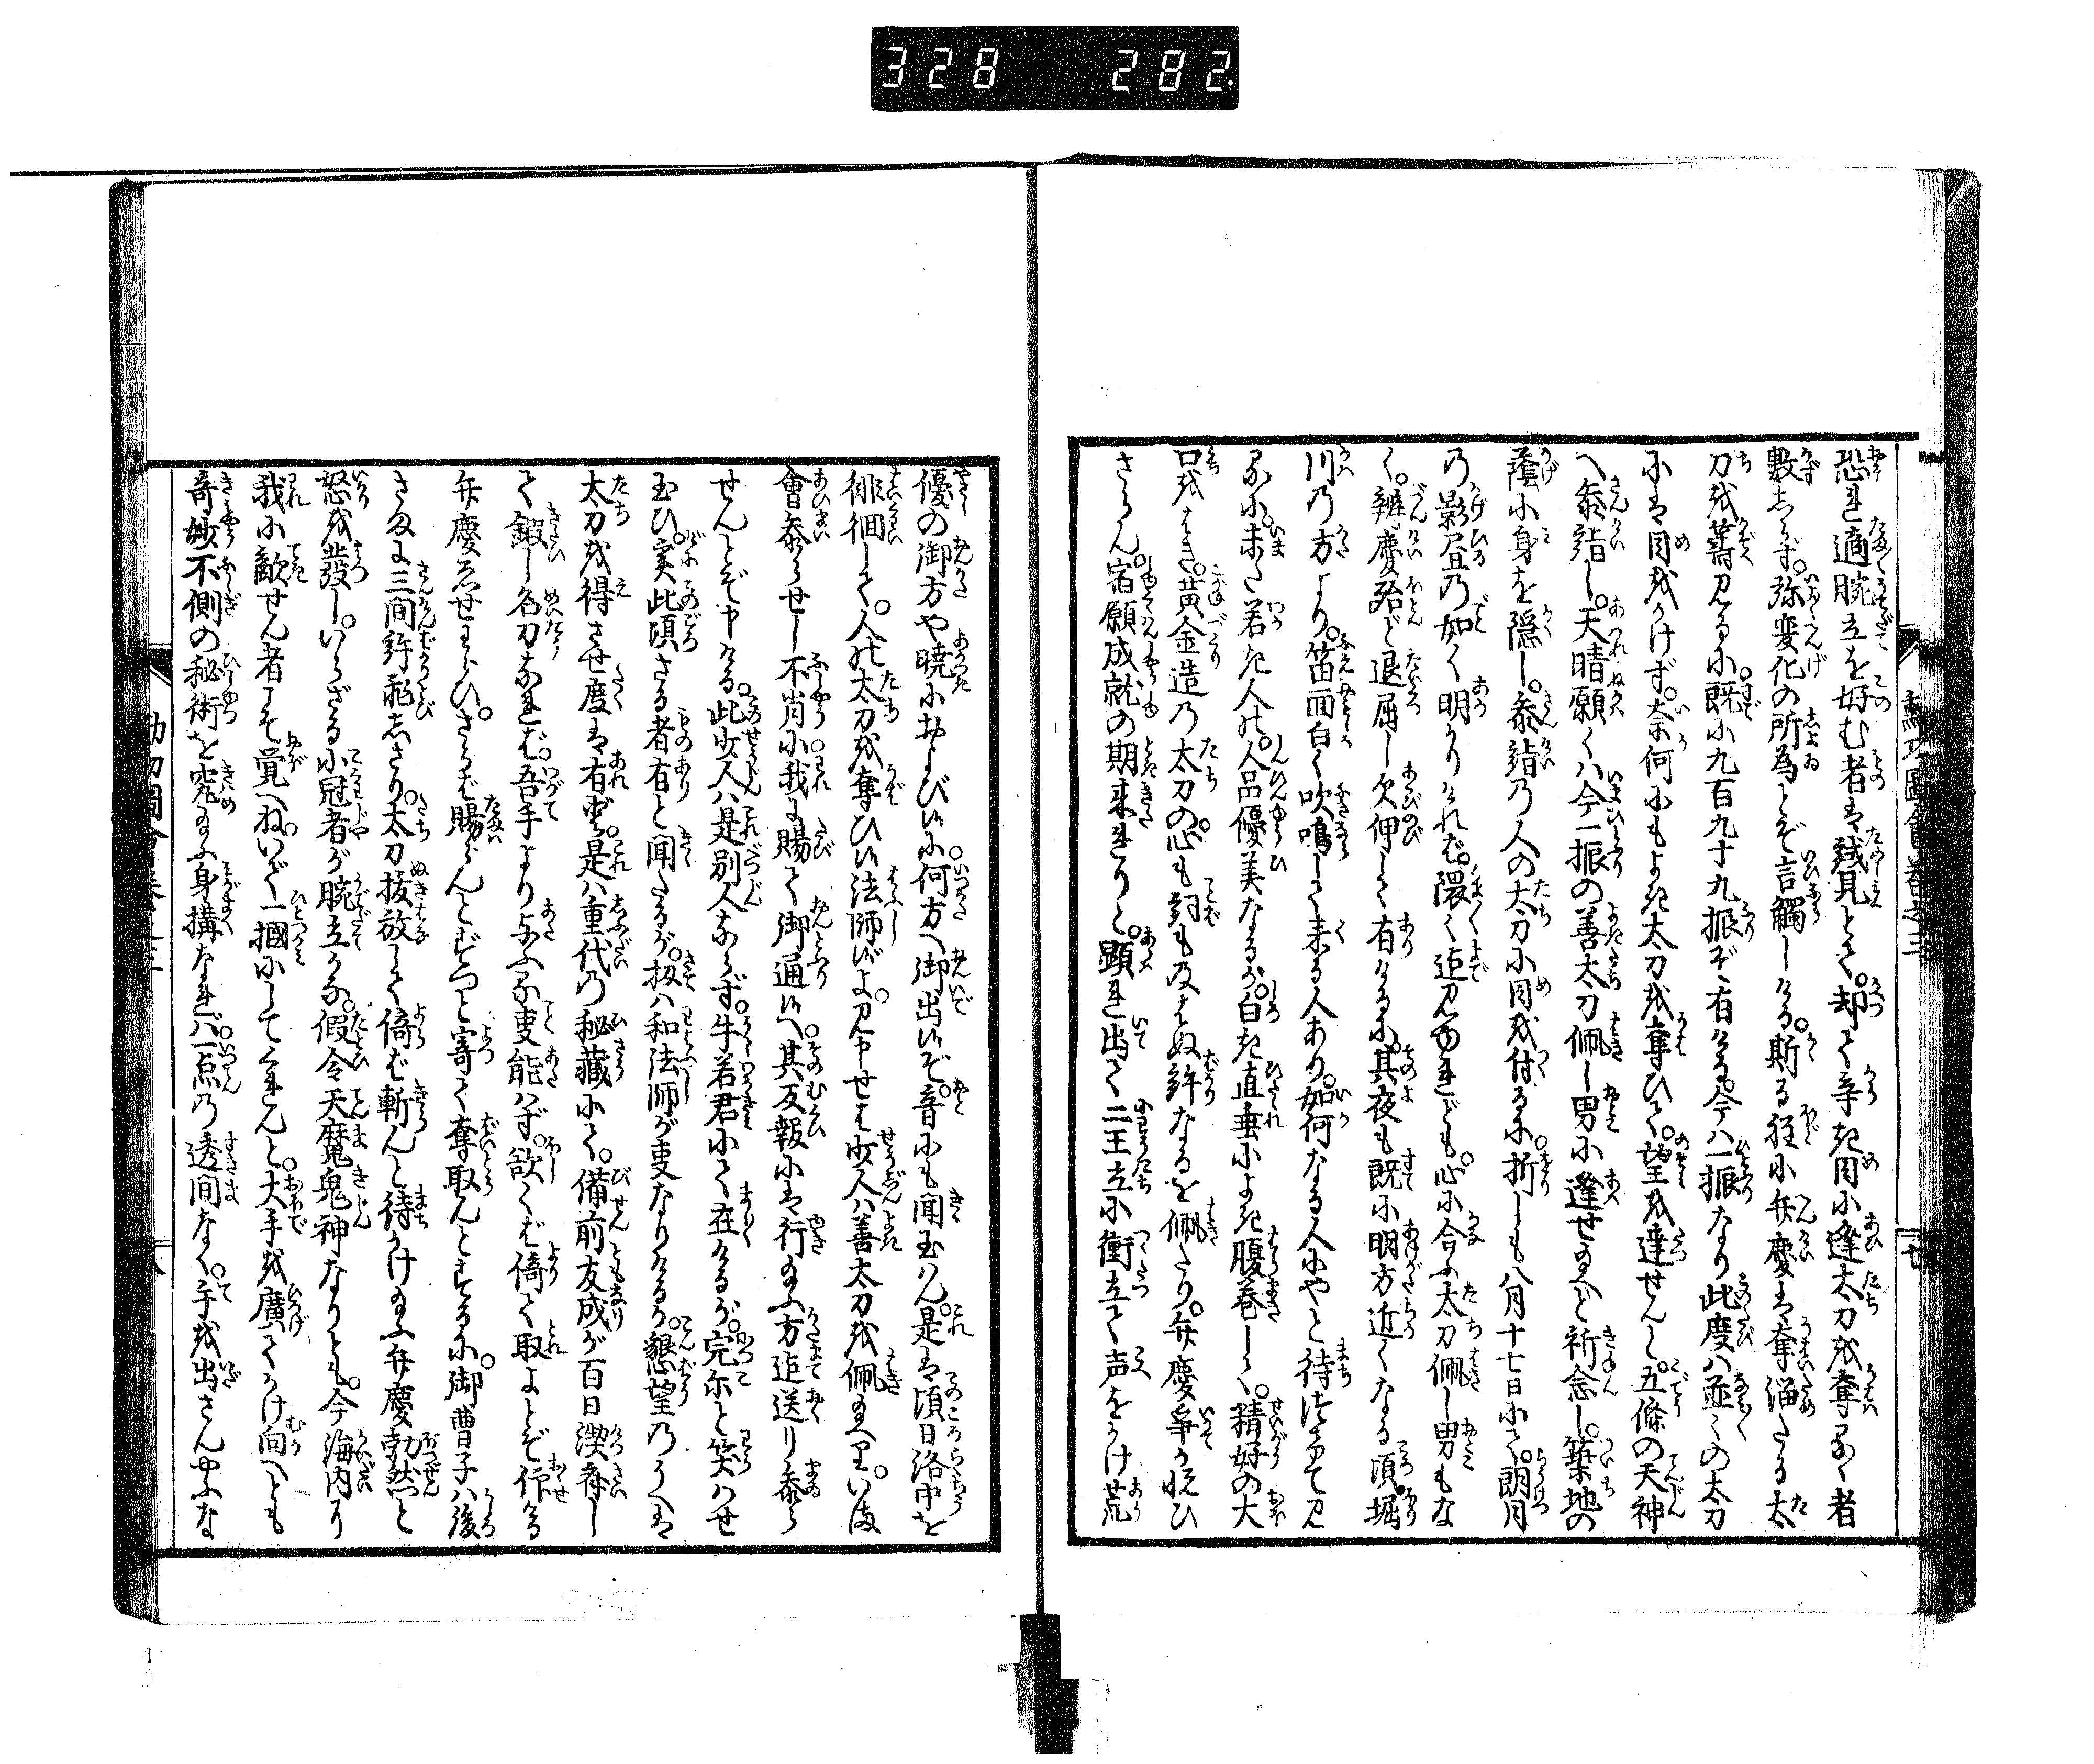 328 282
恐れ適腕立を好む者は試見とて。却て辛き目に逢太刀を奪るゝ者
数しらず。弥変化の所為とぞ言觸しける。斯る程に弁慶は奪溜たる太
刀を算見るに。既に九百九十九振ぞ有ける。今ハ一振なり此度ハ並〻の太刀
には目をかけず。奈何にもよき太刀を奪ひて。望を達せんと。五條の天神
へ参詣し。天晴願くハ今一振の善太刀佩し男に逢せ給へと祈念し。築地の
蔭に身を隠し。参詣の人の太刀に目を付るに。折しも八月十七日にて。朗月
の影昼の如く明かりければ。隈〻迄見ゆれども。心に合ふ太刀佩し男もな
く。辨慶殆ど退屈し欠伸して有けるに。其夜も既に明方近くなる頃。堀
川の方より。笛面白く吹鳴して来る人あり。如何なる人にやと待て見
るに。未だ若き人の。人品優美なるが。白き直垂によき腹巻して。精好の大
口をはき。黄金造の太刀の。心も詞も及ばぬ許なるを佩たり。弁慶争か悦ひ
ざらん。宿願成就の期来れりと。顕れ出て二王立に衝立て声をかけ荒
優の御方や暁におよび候に。何方へ御出候ぞ。音にも聞玉はん。是は頃日洛中を
徘徊して。人の太刀を奪ひ候法師候よ。見申せば少人ハ善太刀を佩給へり。いま
會参らせし不肖に。我に賜て御通候へ。其反報には行給ふ方迄送り参ら
せんとぞ申ける。此少人ハ是別人ならず。牛若君にて在けるが。完尓と笑はせ
玉ひ。実此頃さる者有と聞たるが。扨ハ和法師が事なりけるか。懇望のうへは
太刀を得させ度は有ど。是ハ重代の秘蔵にて。備前友成が百日潔斎し
て鍛し名刀なれば。吾手より与ふる事能ハず。欲くば倚て取よとぞ仰ける
弁慶あせわらひ。さらば賜らんとずつと寄て奪取んとするに。御曹子ハ後
さまに三間許飛しさり。太刀抜放して倚ば斬んと待かけ給ふ弁慶勃然と
怒を發し。いらざる小冠者が腕立かな。假令天魔鬼神なりとも。今海内に
我に敵せん者こそ覚へね。いで一掴にしてくれんと。大手を廣てかけ向へども
奇妙不測の秘術を究給ふ身構なれバ。一点の透間なく。手を出さんやふな